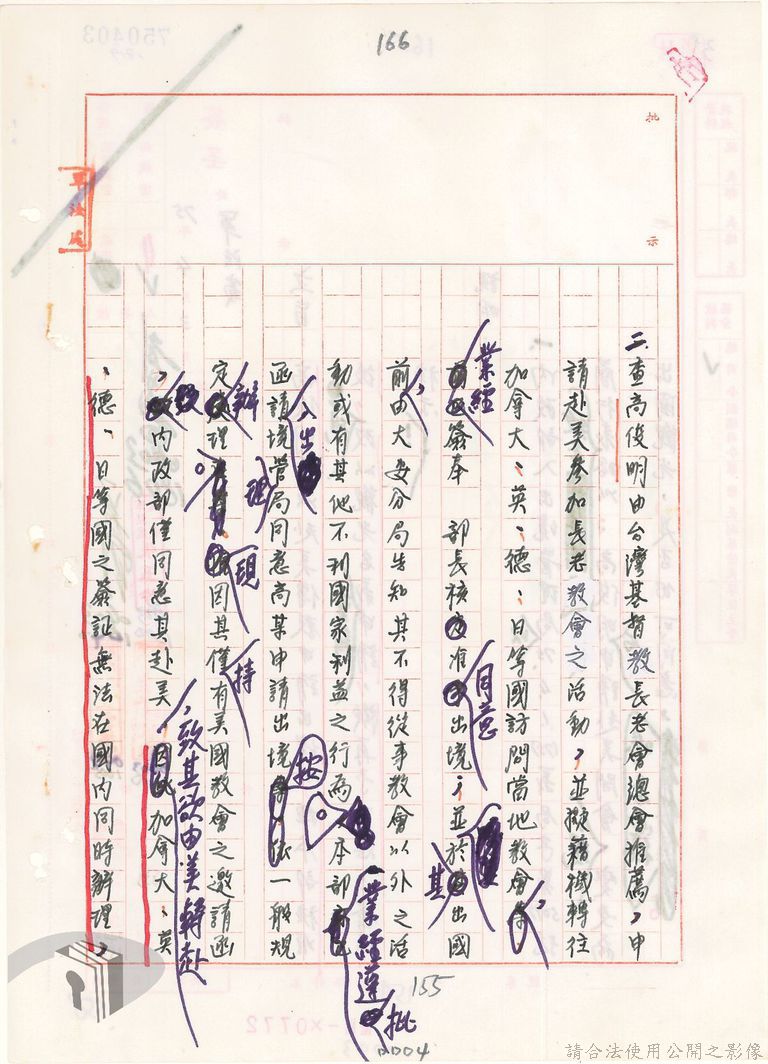 166
批示
軍法處
二、查高俊明由台灣基督教長老會總會推薦，申
請赴美參加長老教會之活動，並擬藉機轉往
加拿大、英、德、日等國訪問當地教會，
業經簽奉　部長核准同意出境，並於其出國
前，由大安分局告知其不得從事教會以外之活
動或有其他不利國家利益之行為。本部業經遵批
函請境管局同意高某申請出入境，按依一般規
定辦理。現因其僅持有美國教會之邀請函
，致內政部僅同意其赴美，致其欲由美轉赴加拿大、英
、德、日等國之簽証無法在國內同時辦理，
155
0004
請合法使用公開之影像